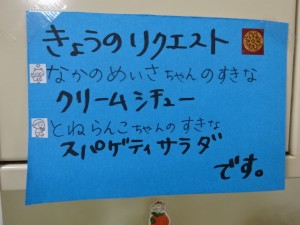 きょうのリクエスト
なかのめいさちゃんのすきな
クリームシチュー
とねらんこちゃんのすきな
スパゲティサラダ
です。